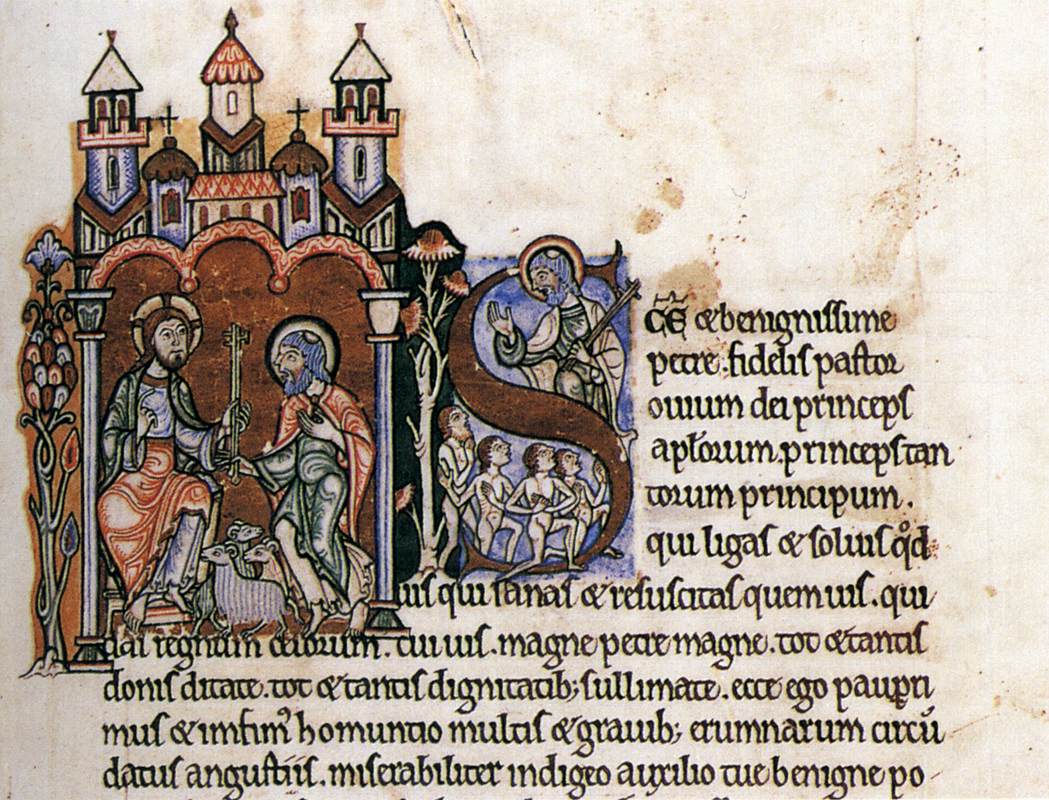 SCE & benignissime
petre. fidelis pastor
ouium dei princeps
apłorum. princeps tan
torum principum.
qui ligas & soluis qd
uis qui sanas & resuscitas quem uis. qui
das regnum celorum. cui uis. magne petre magne. tot & tantis
donis ditate. tot & tantis dignitatib; sullimate. ecce ego pauꝑri
mus & imfimꝰ homuntio multis & grauib; erumnarum circū
datus angustiis. miserabiliter indigeo auxilio tue benigne po-